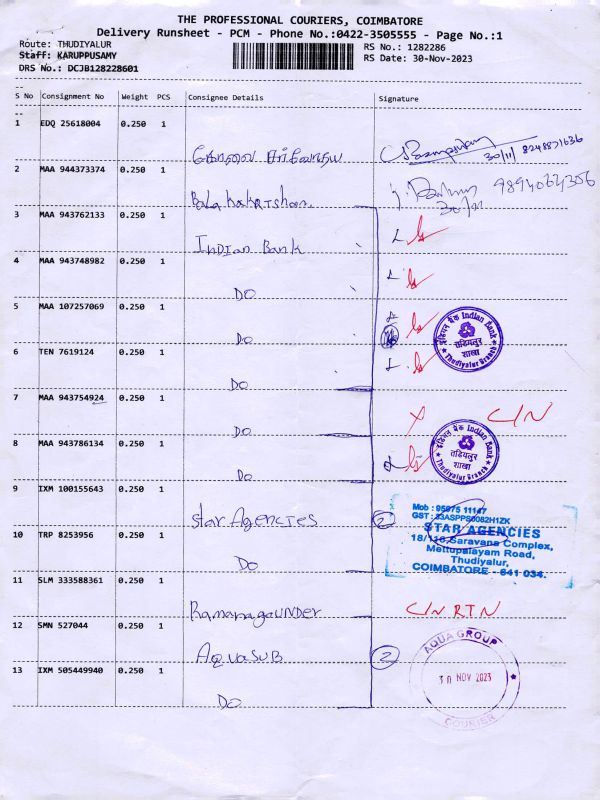 THE PROFESSIONAL COURIERS, COIMBATORE
Delivery Runsheet - PCM - Phone No.:0422-3505555 - Page No.:1
Route: THUDIYALUR
RS No.: 1282286
Staff: KARUPPUSAMY
RS Date: 30-Nov-2023
DRS No.: DCJB128228601
S No Consignment No Weight PCS Consignee Details Signature
1 EDQ 25618004 0.250 1
30/11 8248871636
2 MAA 944373374 0.250 1 Balakakrishnan.
30/11 9894064306
3 MAA 943762133 0.250 1 Indian Bank
4 MAA 943748982 0.250 1 DO
5 MAA 107257069 0.250 1 DO
इंडियन बैंक Indian Bank
तुडियलूर
शाखा
Thudiyalur Branch
6 TEN 7619124 0.250 1 DO
7 MAA 943754924 0.250 1 DO X C/N
8 MAA 943786134 0.250 1 DO
इंडियन बैंक Indian Bank
तुडियलूर
शाखा
Thudiyalur Branch
9 IXM 100155643 0.250 1 Star Agencies 2
Mob : 95975 11147
GST : 33ASPPS0082H1ZK
STAR AGENCIES
18/116, Saravana Complex,
Mettupalayam Road,
Thudiyalur,
COIMBATORE - 641 034.
10 TRP 8253956 0.250 1 DO
11 SLM 333588361 0.250 1 Ramanagaunder C/N RTN
12 SMN 527044 0.250 1 Aquasub 2
AQUA GROUP
30 NOV 2023
COURIER
13 IXM 505449940 0.250 1 DO